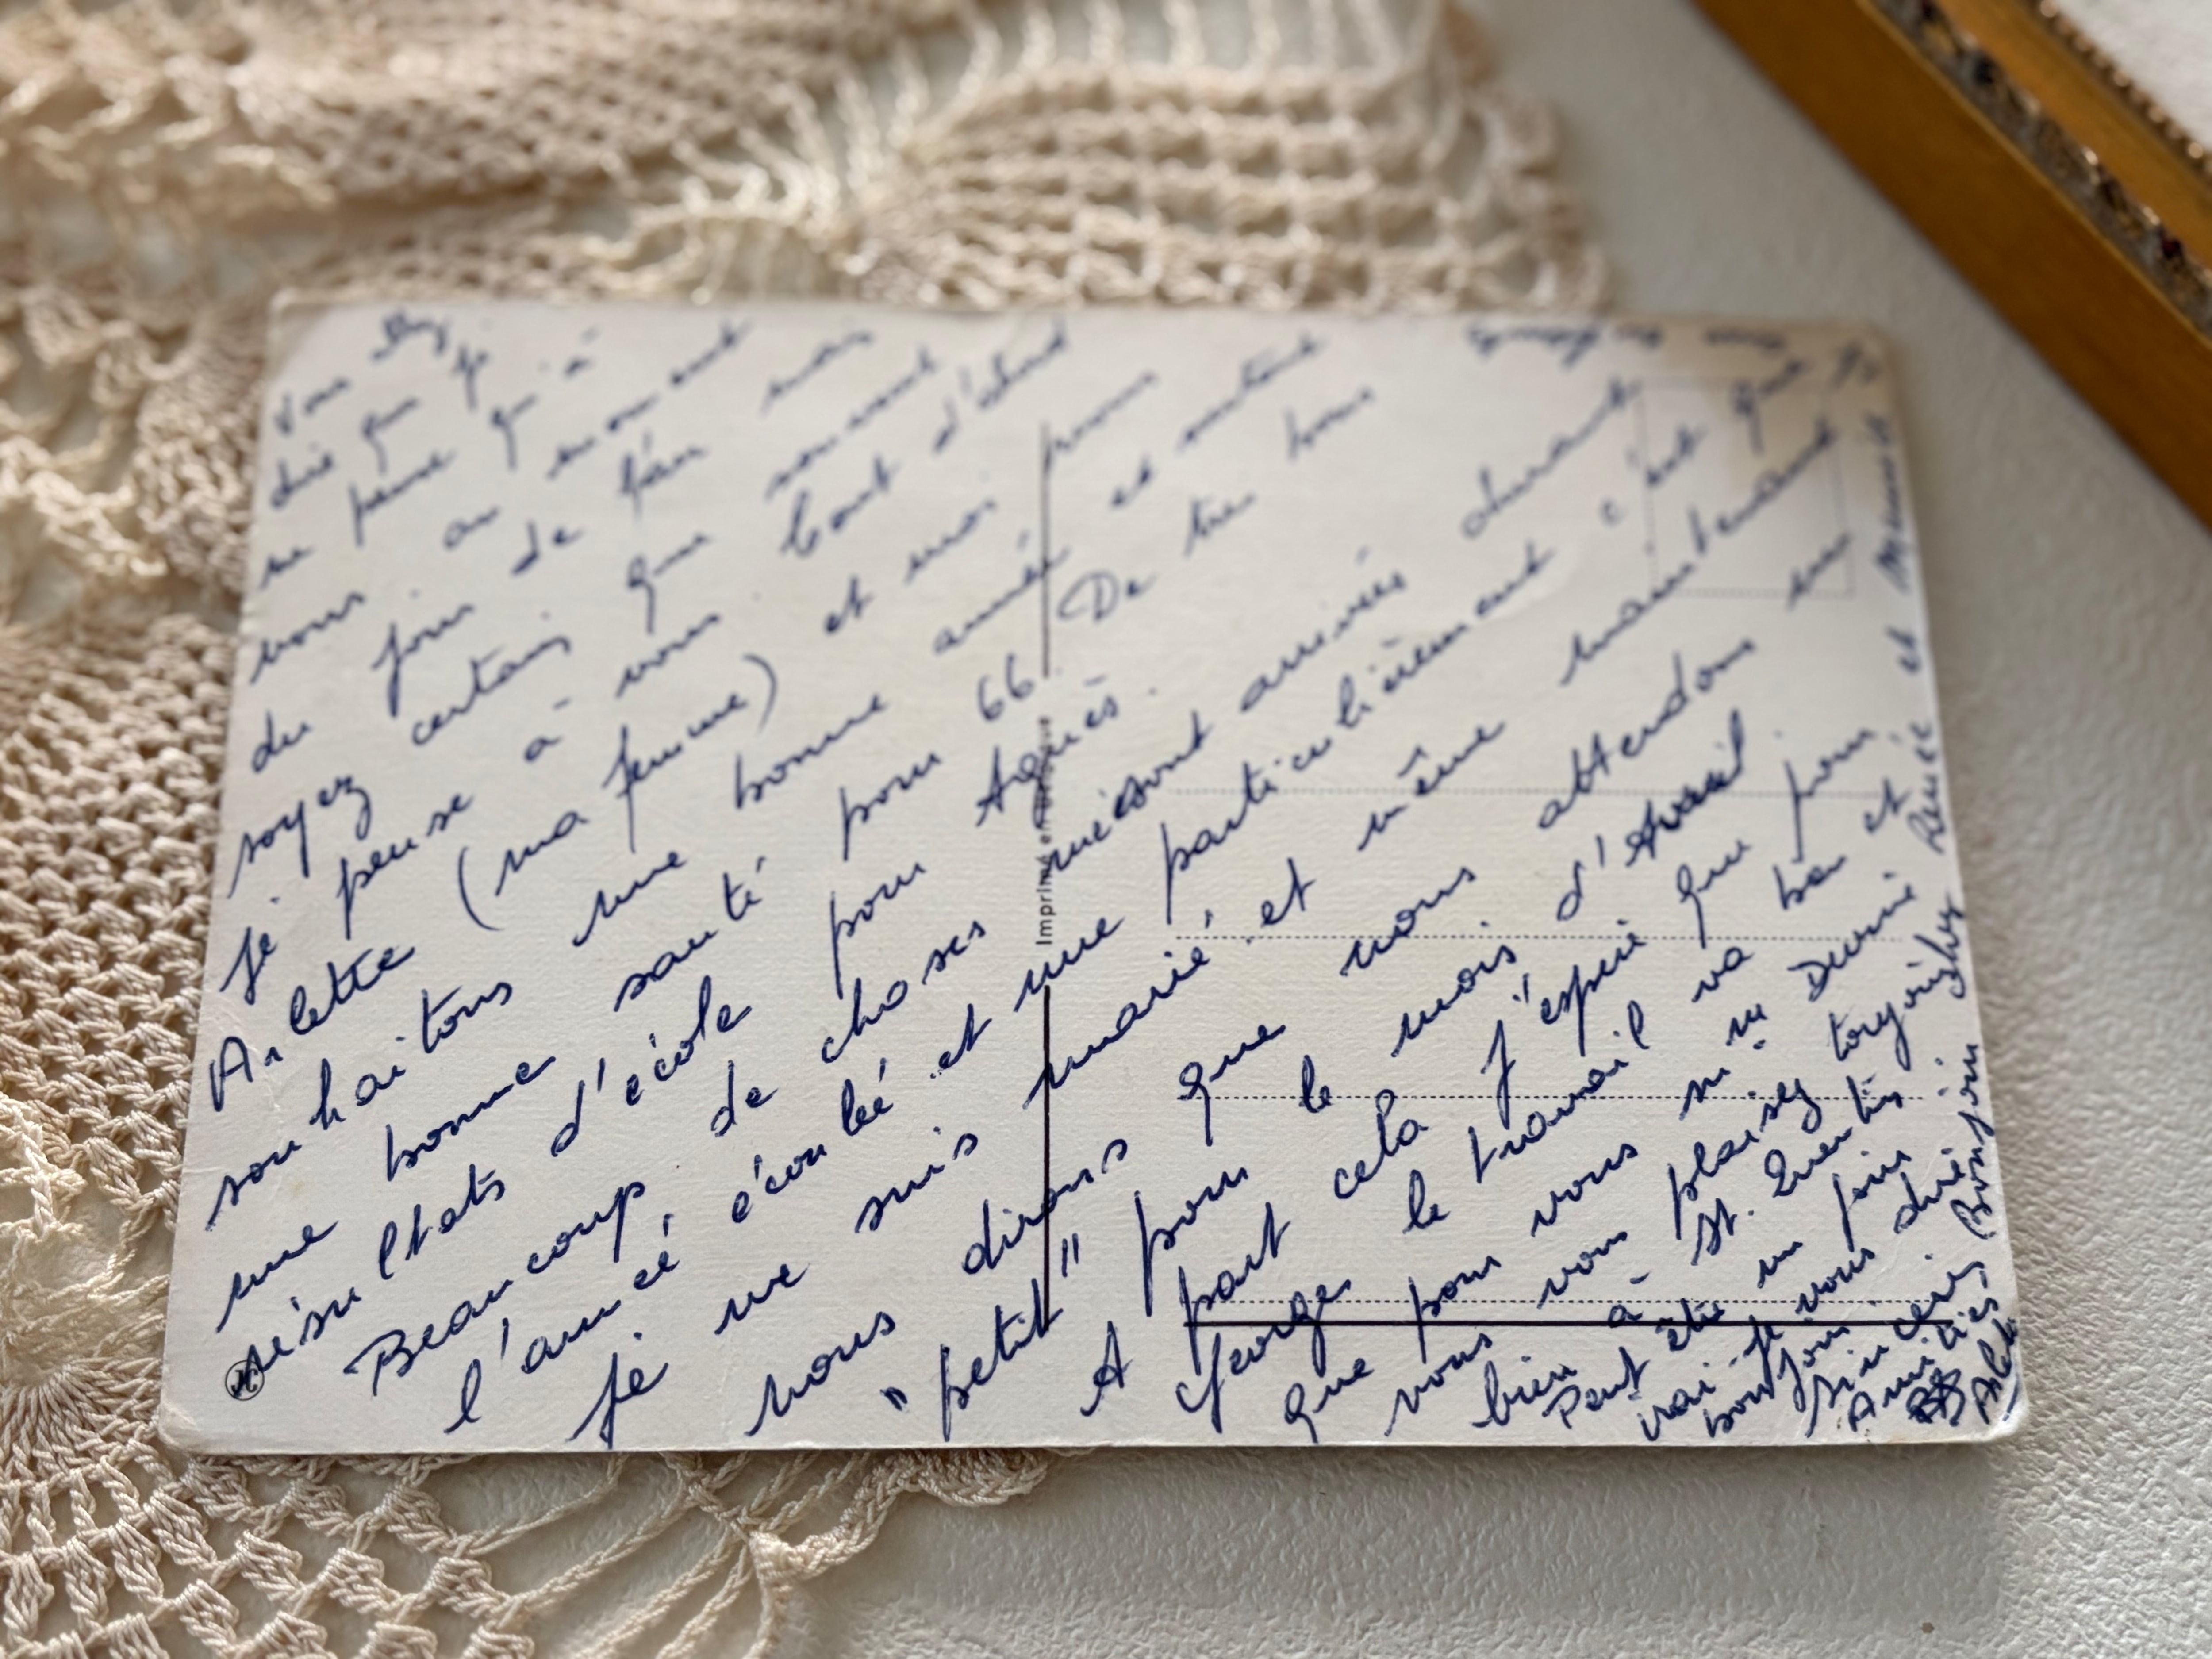 Vous allez
dire que je
ne pense qu'à
vous au moment
du jour de l'an mais
soyez certain que souvent
Je pense à vous tout d'abord
Arlette (ma femme) et moi vous
souhaitons une bonne année et surtout
une bonne santé pour 66. De très bons
résultats d'école pour Agnès.
Beaucoup de choses me sont arrivées durant
l'année écoulée et une particulièrement c'est que
Je me suis marié et même maintenant
nous dirons que nous attendons un
"petit" pour le mois d'Avril.
A part cela j'espère que pour
George le travail va bien et
que pour vous Denise
vous vous plaisez toujours
bien à St. Quentin
Peut être un jour
irai-je vous dire
bonjour.
Sincères
Amitiés
Bonjour chez Renée et
Imprimé en